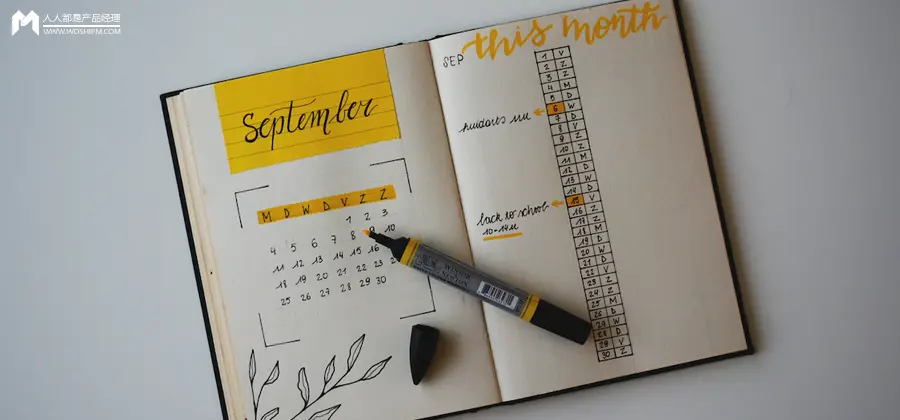 人人都是产品经理
WWW.WOSHIPM.COM
September
M D W D V Z Z
1 2 3
4 5 6 7 8 9 10
11 12 13 14 15 16
18 19 20 21 22 23
25 26 27 28 29 30
SEP this month
1 V
2 Z
3 Z
4 M
5 D
6 W
7 D
8 V
9 Z
10 Z
11 M
12 D
13 W
14 D
15 V
16 Z
17 Z
18 M
19 D
20 W
21 D
22 V
23 Z
24 Z
25 M
26 D
28 D
29 V
30 Z
back to school
10-14u